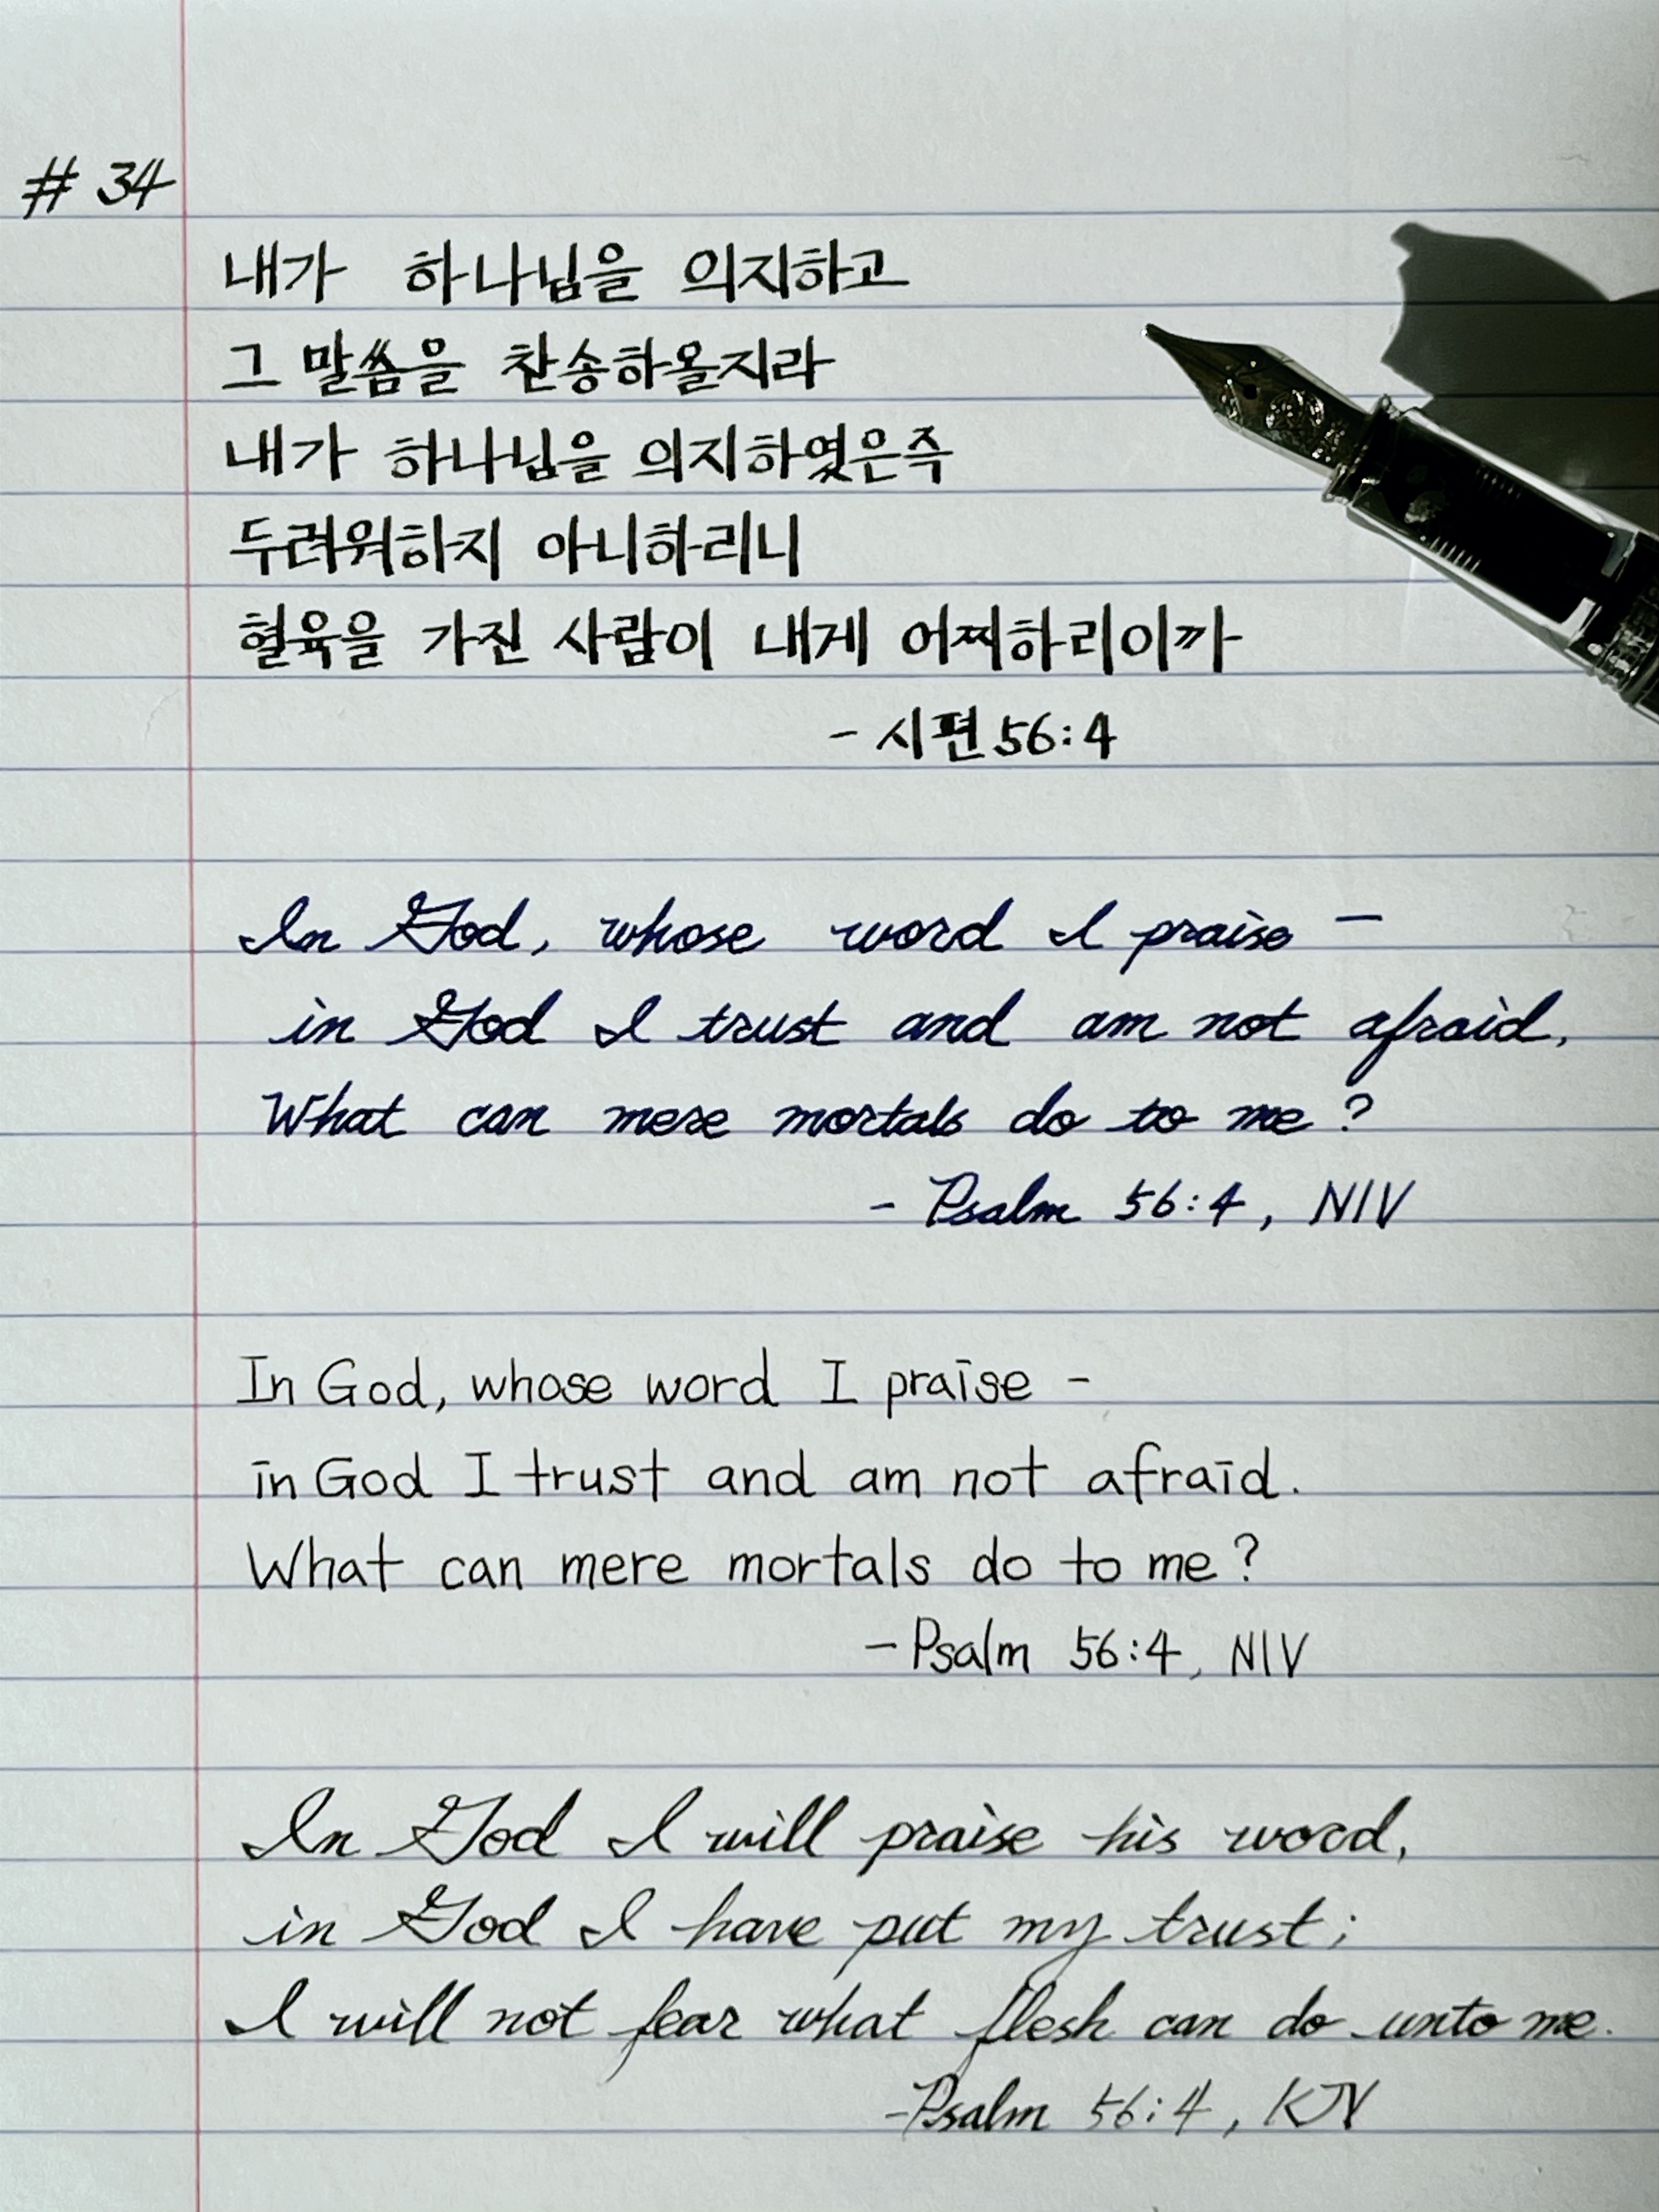 # 34
내가 하나님을 의지하고
그 말씀을 찬송하올지라
내가 하나님을 의지하였은즉
두려워하지 아니하리니
혈육을 가진 사람이 내게 어찌하리이까
- 시편 56:4
In God, whose word I praise —
in God I trust and am not afraid.
What can mere mortals do to me?
- Psalm 56:4, NIV
In God, whose word I praise -
in God I trust and am not afraid.
What can mere mortals do to me?
- Psalm 56:4, NIV
In God I will praise his word,
in God I have put my trust;
I will not fear what flesh can do unto me.
- Psalm 56:4, KJV